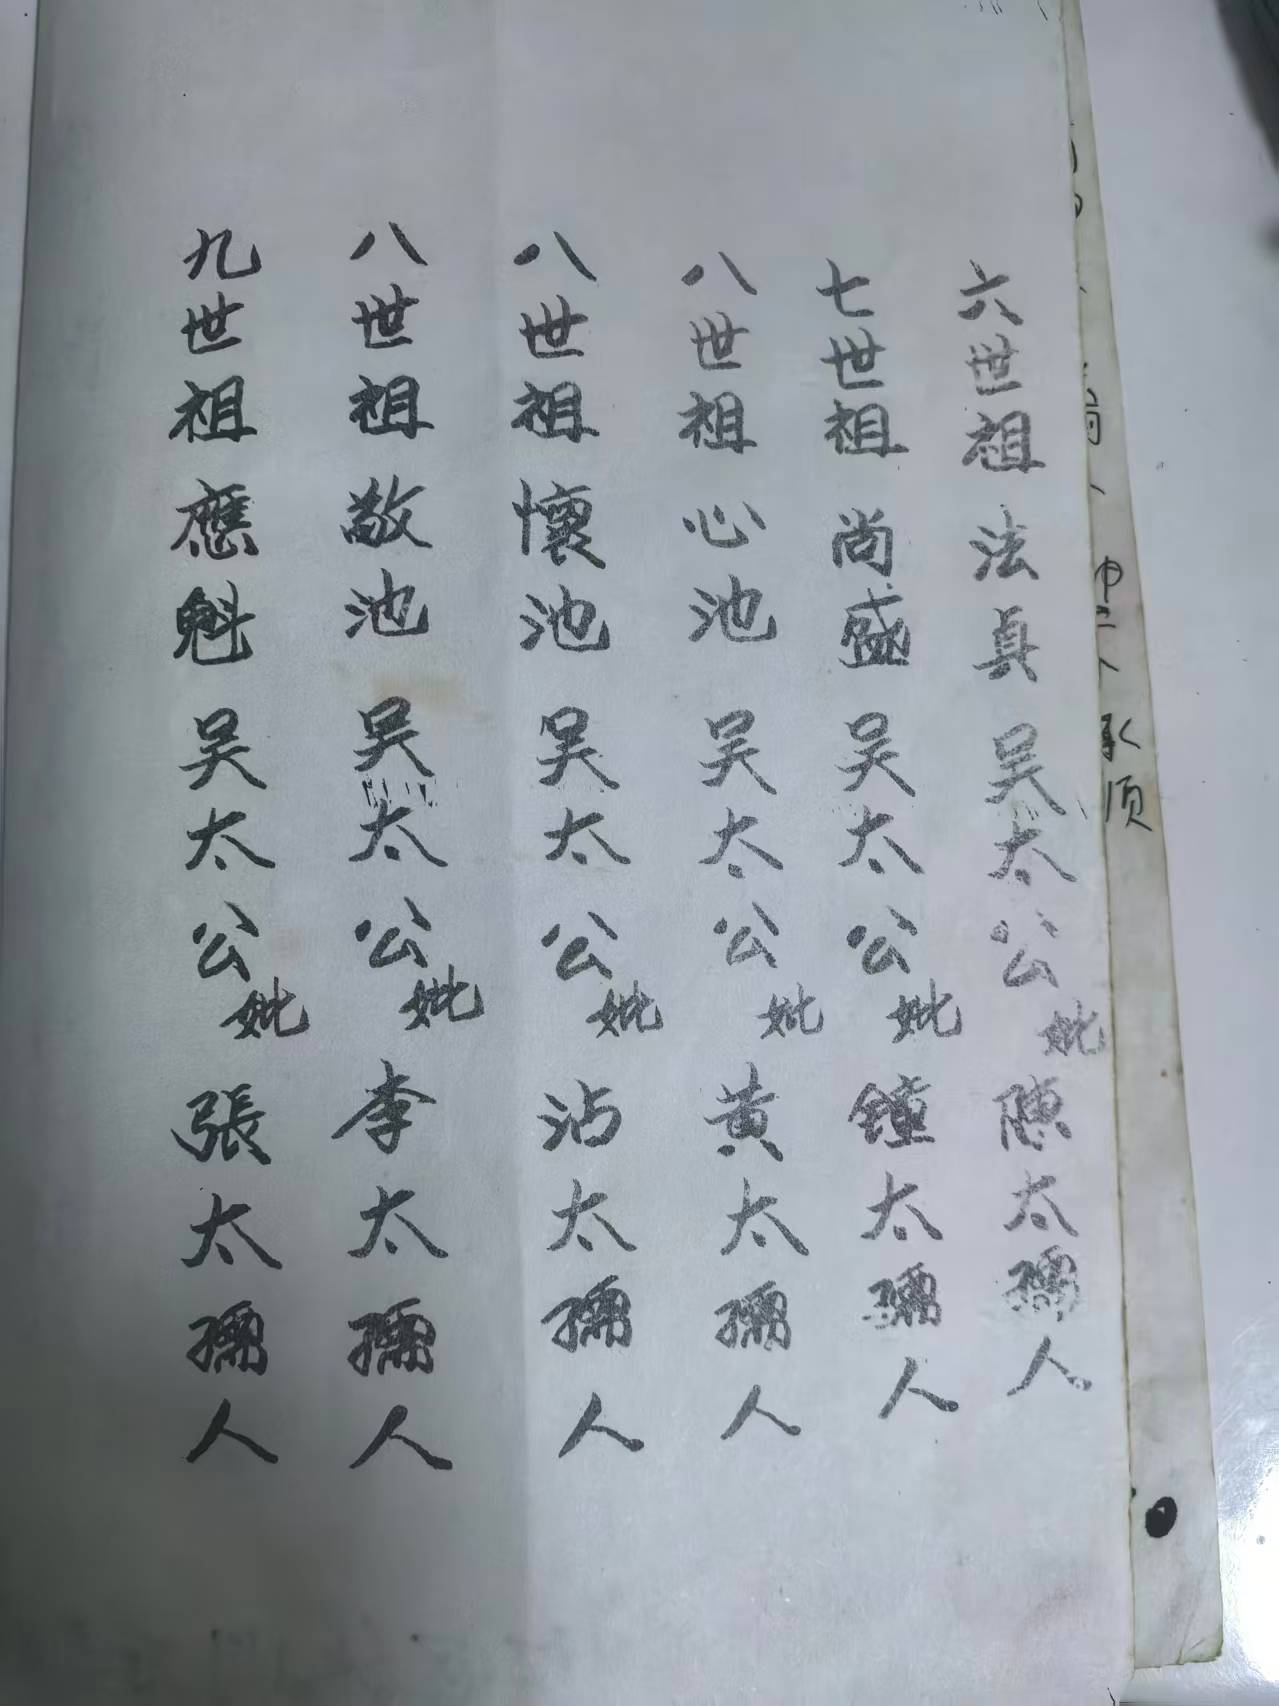 六世祖法真吴太公妣陳太孺人
七世祖尚盛吴太公妣鐘太孺人
八世祖心池吴太公妣黄太孺人
八世祖懷池吴太公妣沾太孺人
八世祖敬池吴太公妣李太孺人
九世祖應魁吴太公妣張太孺人